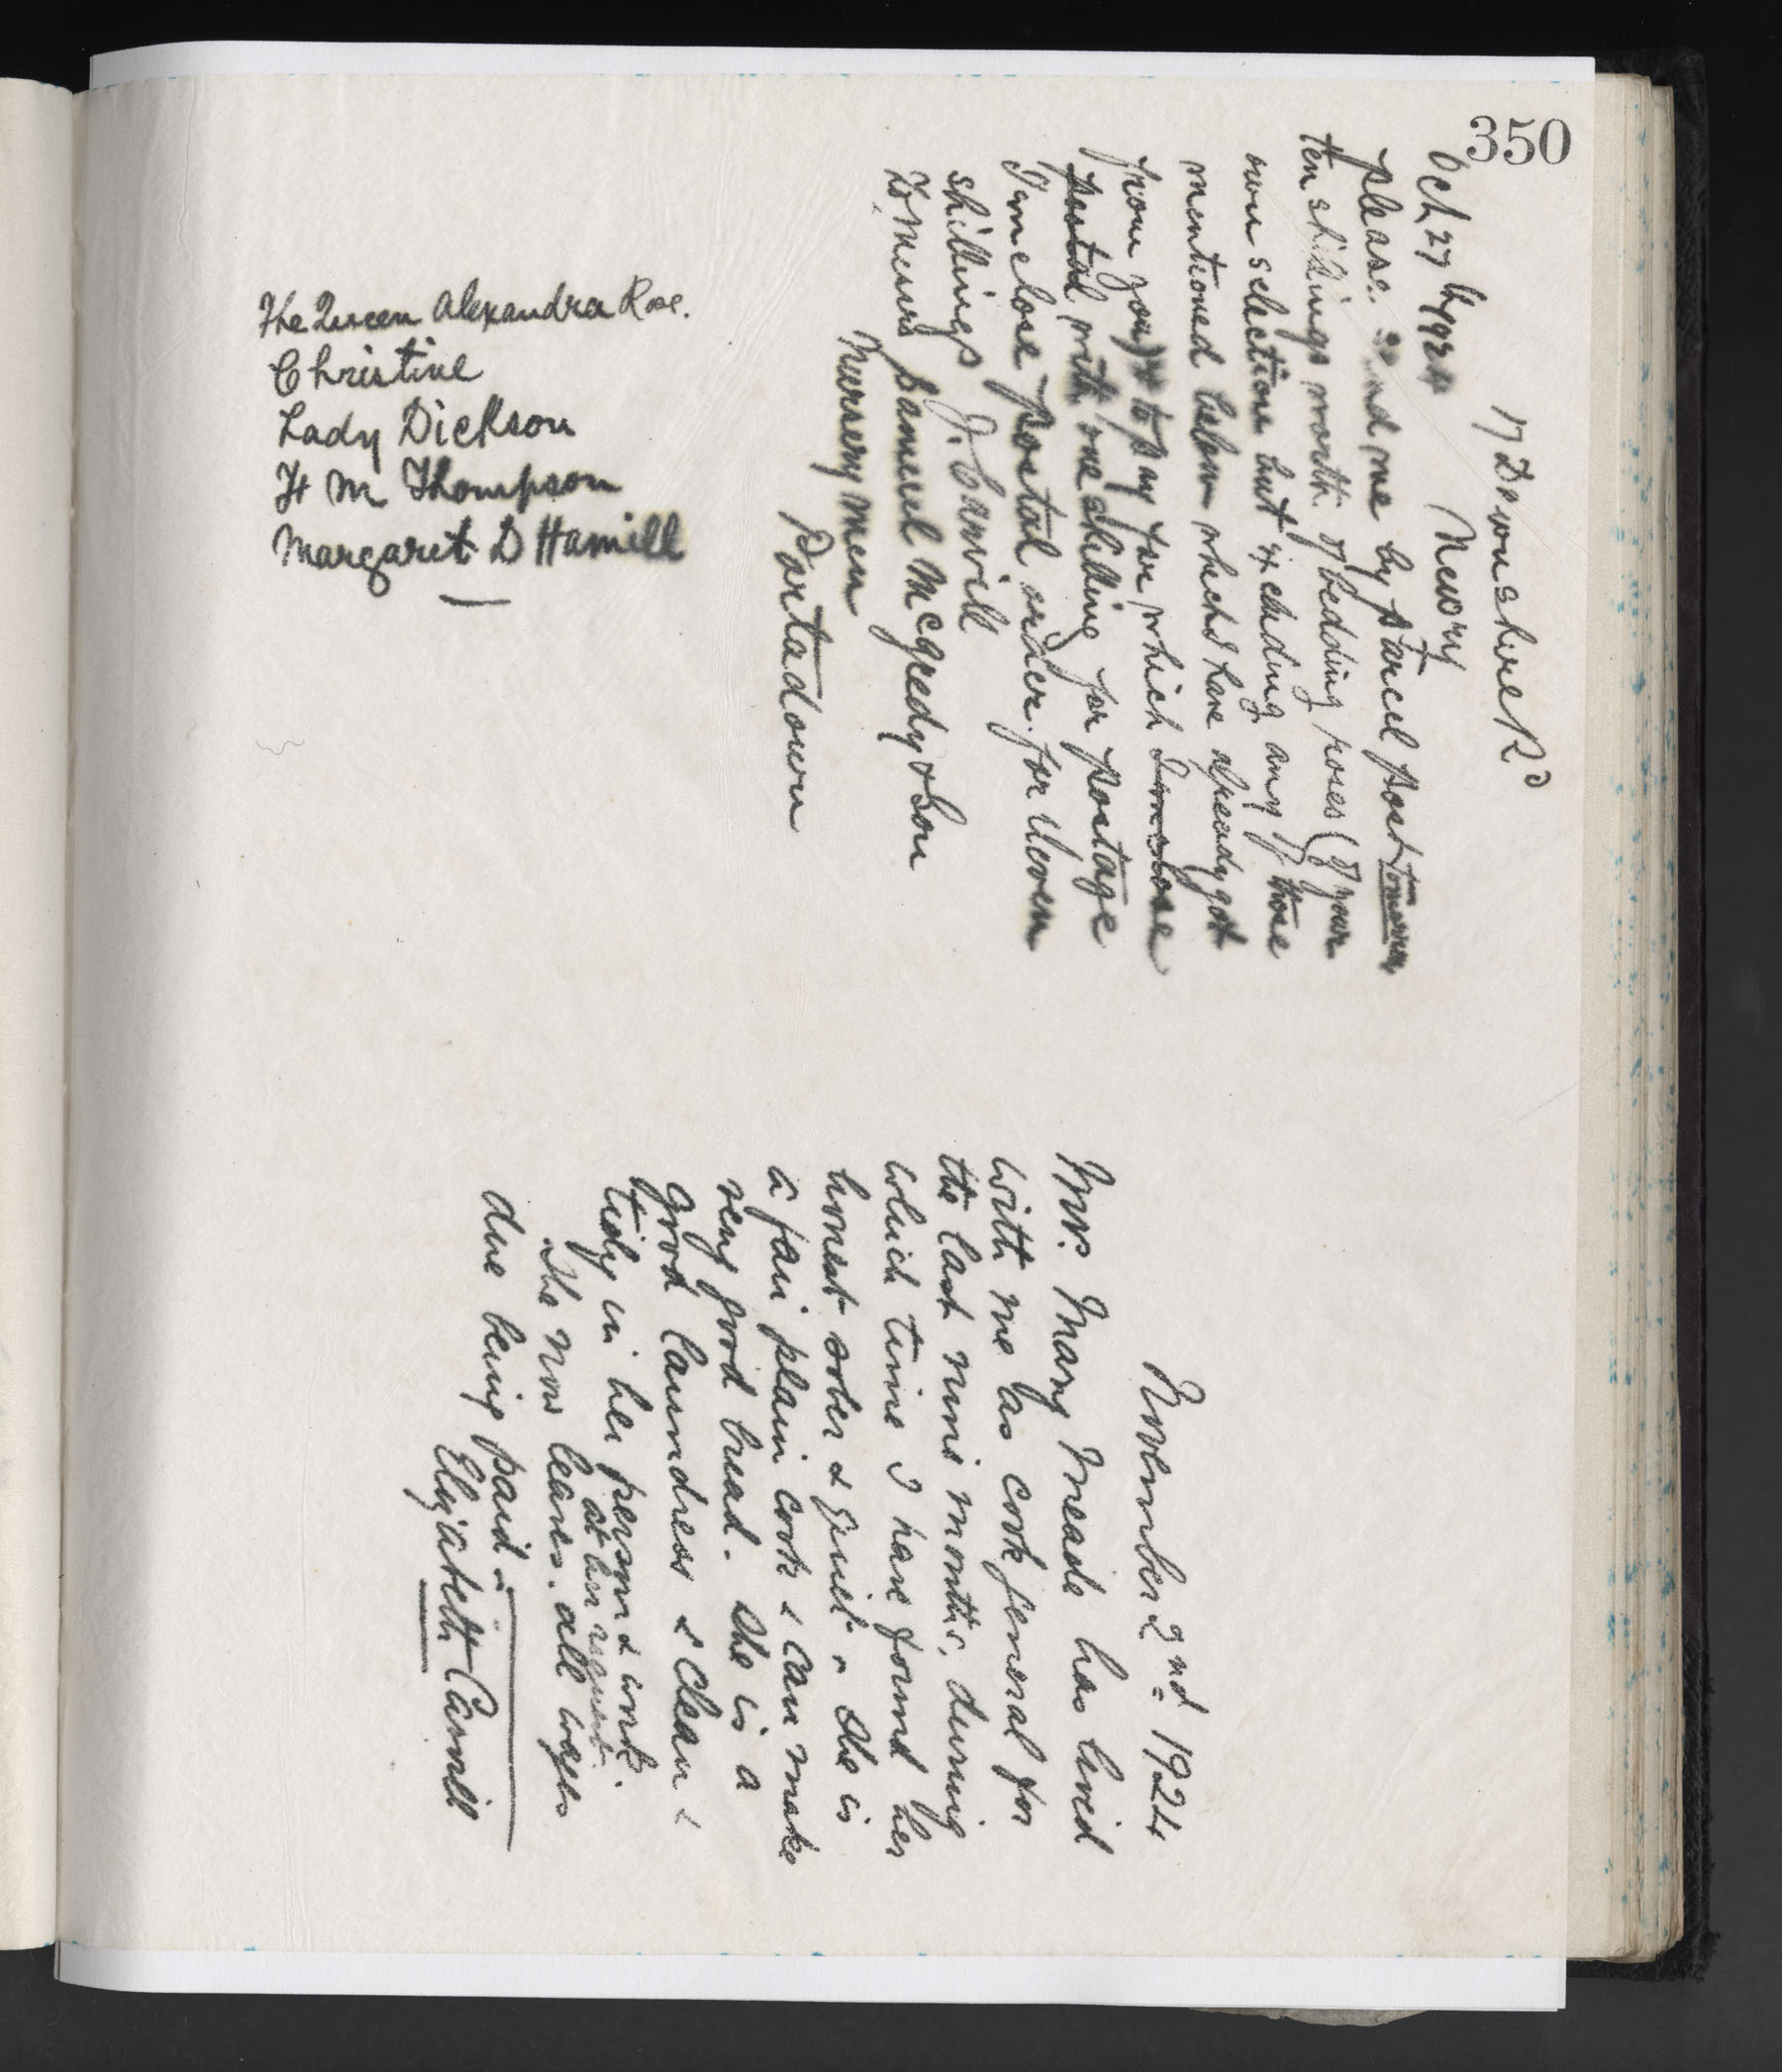 350
17 Downshire Rd
Newry
Oct 27th 1924
please send me by parcel post tomorrow
ten shillings worth of bedding roses (of your
own selection but excluding any of those
mentioned below which I have already got
from you) to pay for which I inclose
postal with one shilling for postage
I inclose postal order for eleven
shillings J. Canvill
To Messrs Samuel McGredy & Son
Nurserymen
Portadown
The Queen Alexandra Rose.
Christine
Lady Dickson
H M Thompson
Margaret D Hamill
November 2nd 1924
Mrs. Mary Meade has lived
with me as cook general for
the last nine months, during
which time I have found her
honest sober & quiet. She is
a fair plain cook & can make
very good bread. She is a
good laundress & clean &
tidy in her person & work.
at her request
She now leaves, all wages
due being paid.
Elizabeth Canvill